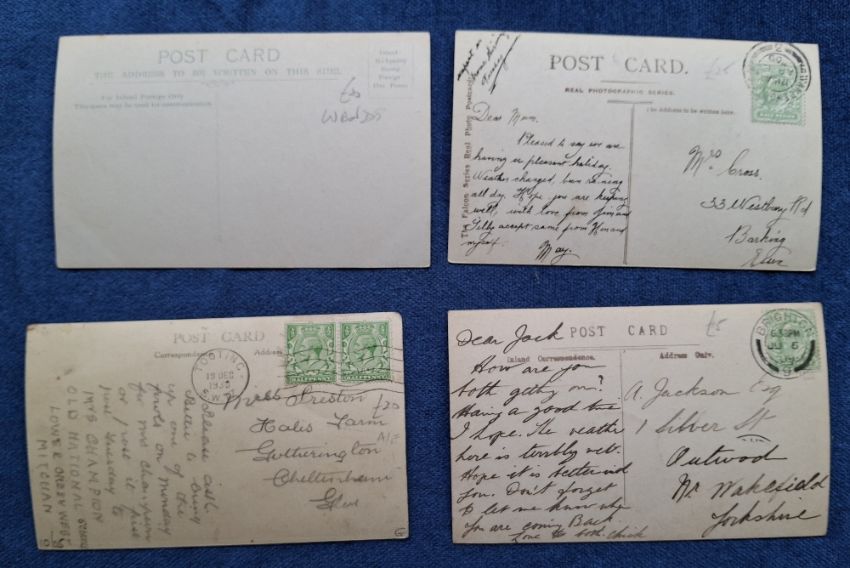 POST CARD
THE ADDRESS TO BE WRITTEN ON THIS SIDE.
Inland
Stamp
Foreign
For Inland Postage Only
This space may be used for communication
POST CARD.
REAL PHOTOGRAPHIC SERIES.
The Address to be written here.
The Falcon Series Real Photo Postcard
HALF PENNY
Dear Mum.
Pleased to say we are
having a pleasant holiday.
Weather changed, been raining
all day. Hope you are keeping
well, with love from Jim and
Tilly accept same from Ken and
myself.
May.
Mrs Cross.
33 Westbury Rd
Barking
Essex
POST CARD
Correspondence
Address
TOOTING
19 DEC
S.W.17
HALFPENNY
HALFPENNY
Preston
Hales Farm
Gotherington
Cheltenham
Glos
£20
Please ask
to bring
up one of the
on Monday
for Mrs Champion
or post it
next Tuesday to
MRS CHAMPION
OLD NATIONAL
LOWER GREEN WEST
MITCHAM
POST CARD
Inland Correspondence.
Address Only.
£5
BRIGHTON
Dear Jack
How are you
both getting on?
Having a good time
I hope. The weather
here is terribly wet.
Hope it is better with
you. Don't forget
to let me know when
you are coming Back
Love to both. Chick
A. Jackson Esq
1 Silver St
Outwood
Nr Wakefield
Yorkshire